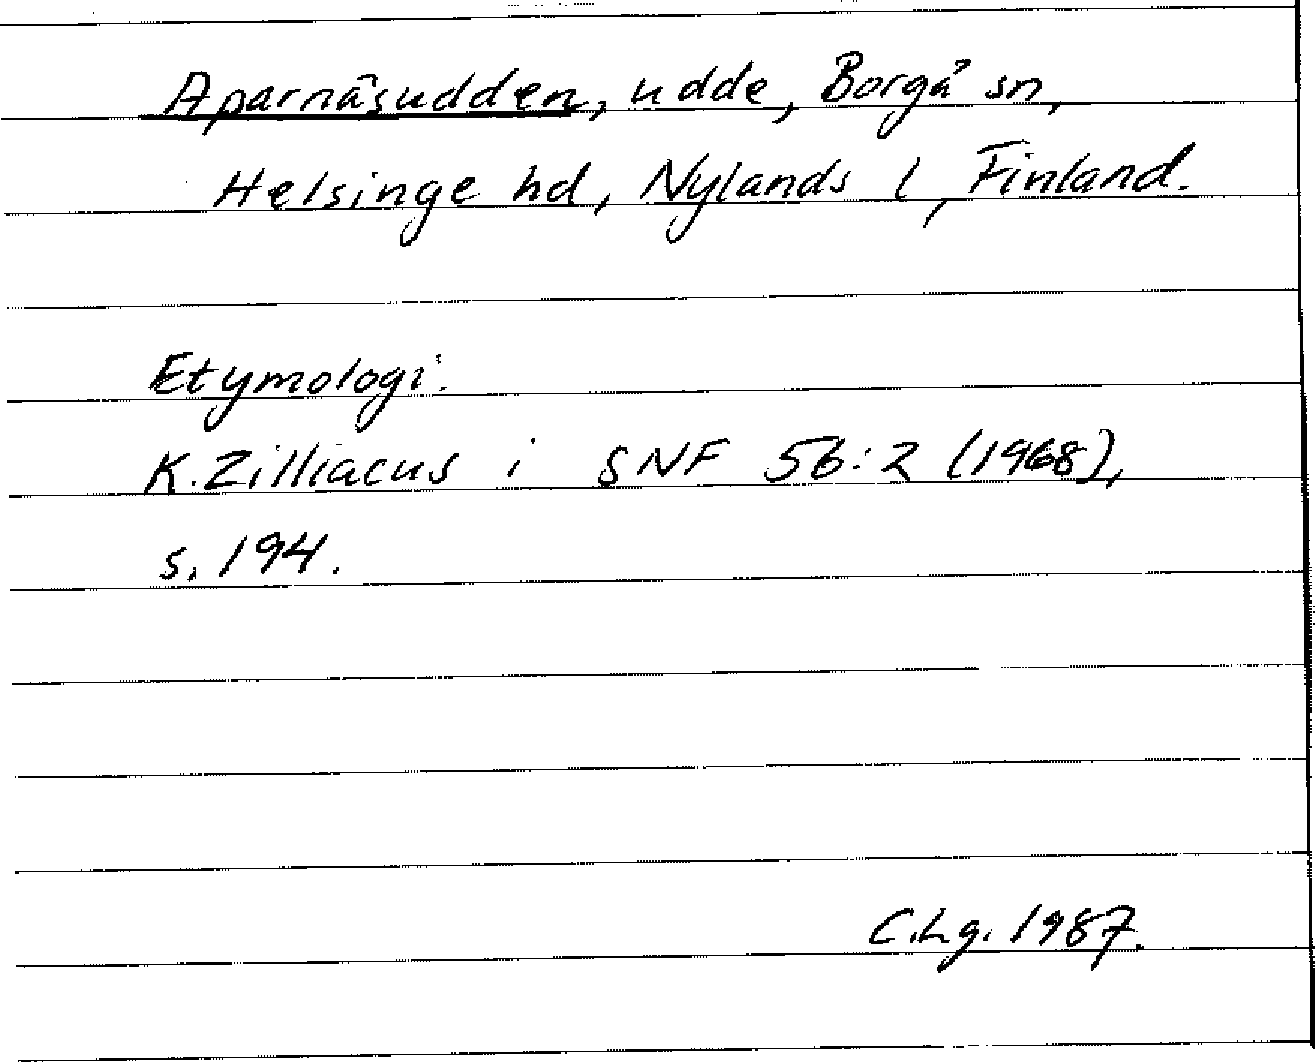 Aparnäsudden, udde, Borgå sn,
Helsinge hd, Nylands l, Finland.
Etymologi:
K. Zilliacus i SNF 56:2 (1968),
s. 194.
C.Lg. 1987.